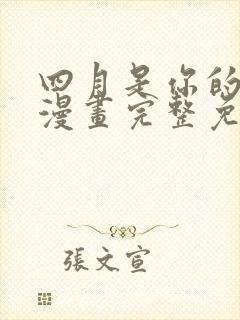 四月是你的
漫畫完整免
張文宣